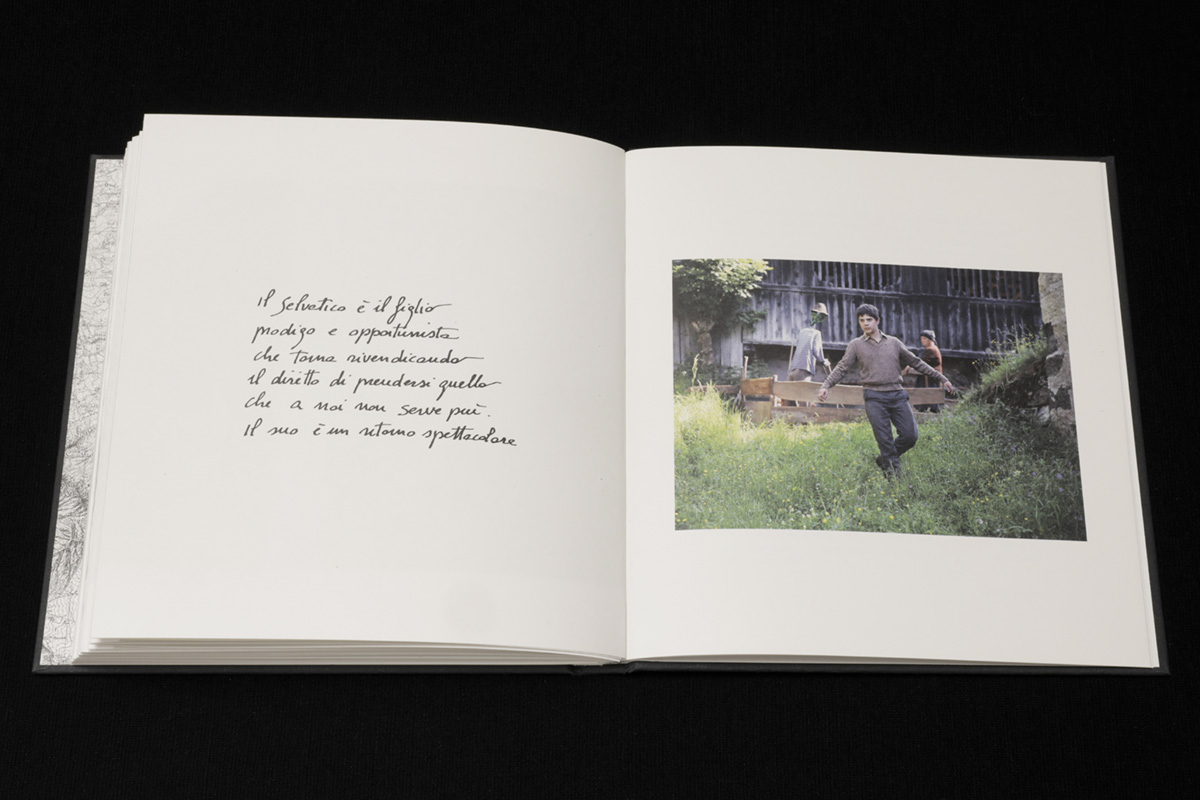 Il selvatico è il figlio
prodigo e opportunista
che torna rivendicando
il diritto di prendersi quello
che a noi non serve più.
Il suo è un ritorno spettacolare